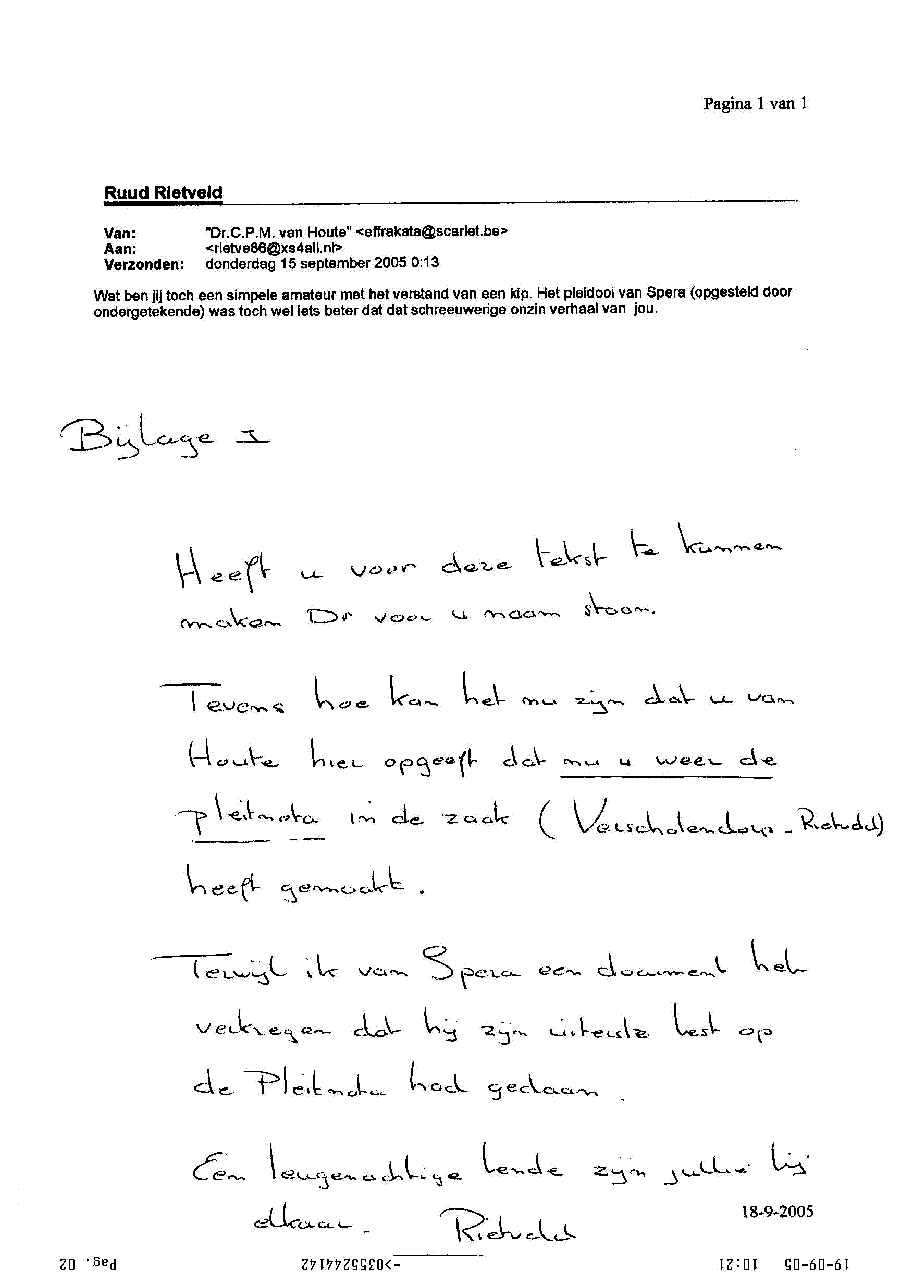 Pagina 1 van 1
Ruud Rietveld
Van: "Dr.C.P.M. van Houte" <effrakata@scarlet.be>
Aan: <rietve86@xs4all.nl>
Verzonden: donderdag 15 september 2005 0:13
Wat ben jij toch een simpele amateur met het verstand van een kip. Het pleidooi van Spera (opgesteld door
ondergetekende) was toch wel iets beter dat dat schreeuwerige onzin verhaal van jou.
Bijlage I
Heeft u voor deze tekst te kunnen
maken Dr voor u naam staan.
Tevens hoe kan het nu zijn dat u van
Houte hier opgeeft dat nu u weer de
pleitnota in de zaak ( - Rietveld)
heeft gemaakt.
Terwijl ik van Spera een document heb
verkregen dat hij zijn uiterste best op
de Pleitnota had gedaan.
Een leugenachtige bende zijn jullie bij
elkaar.
Rietveld
18-9-2005
19-09-05 10:21 ->0355244142 Pag. 02